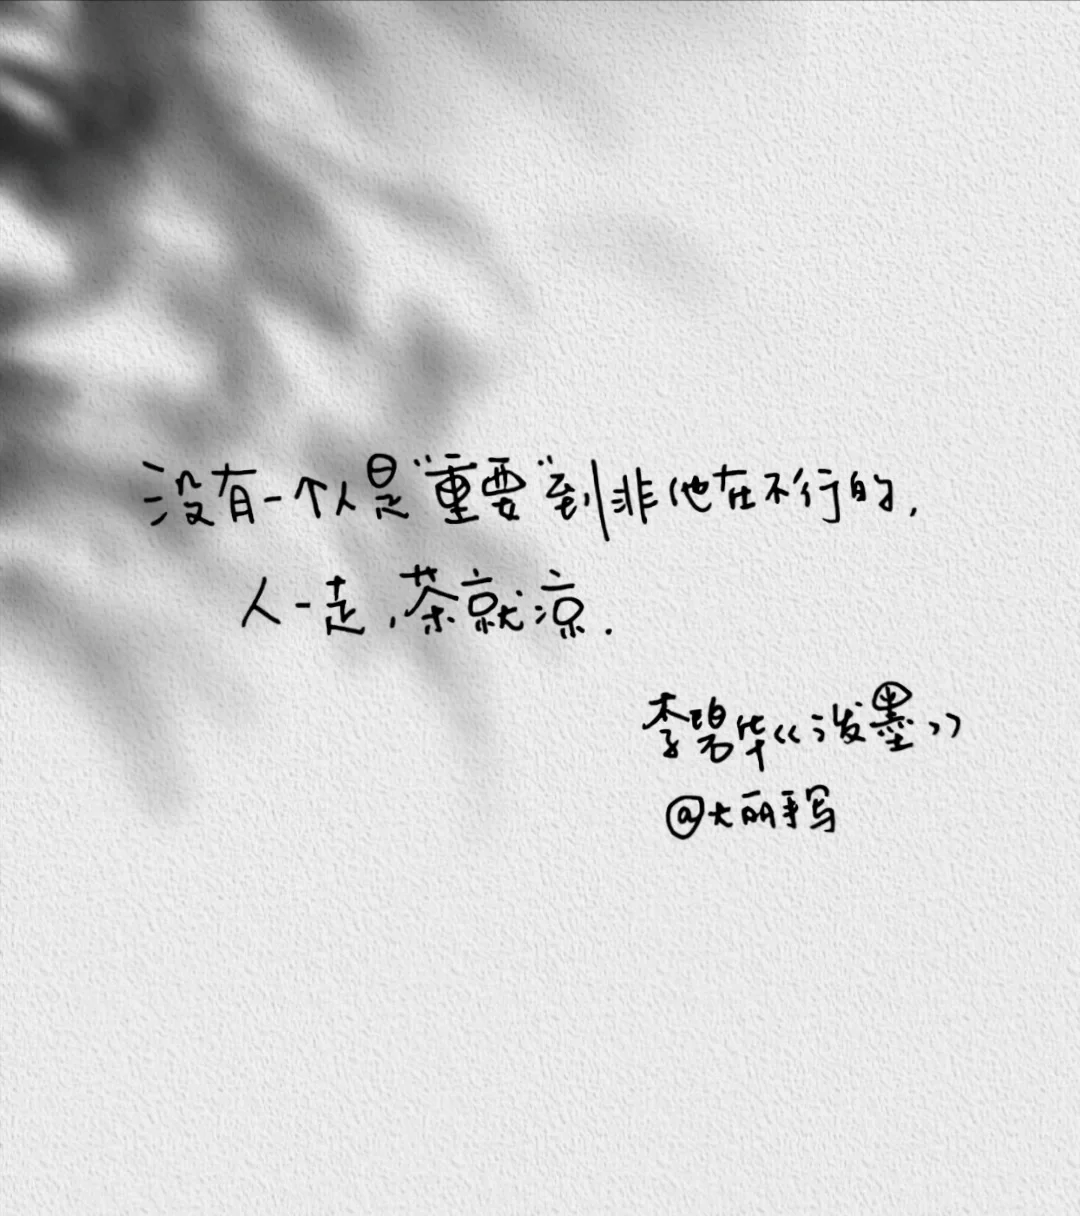 没有一个人是“重要”到非他在不行的，
人一走，茶就凉．
李碧华《泼墨》
@大丽手写